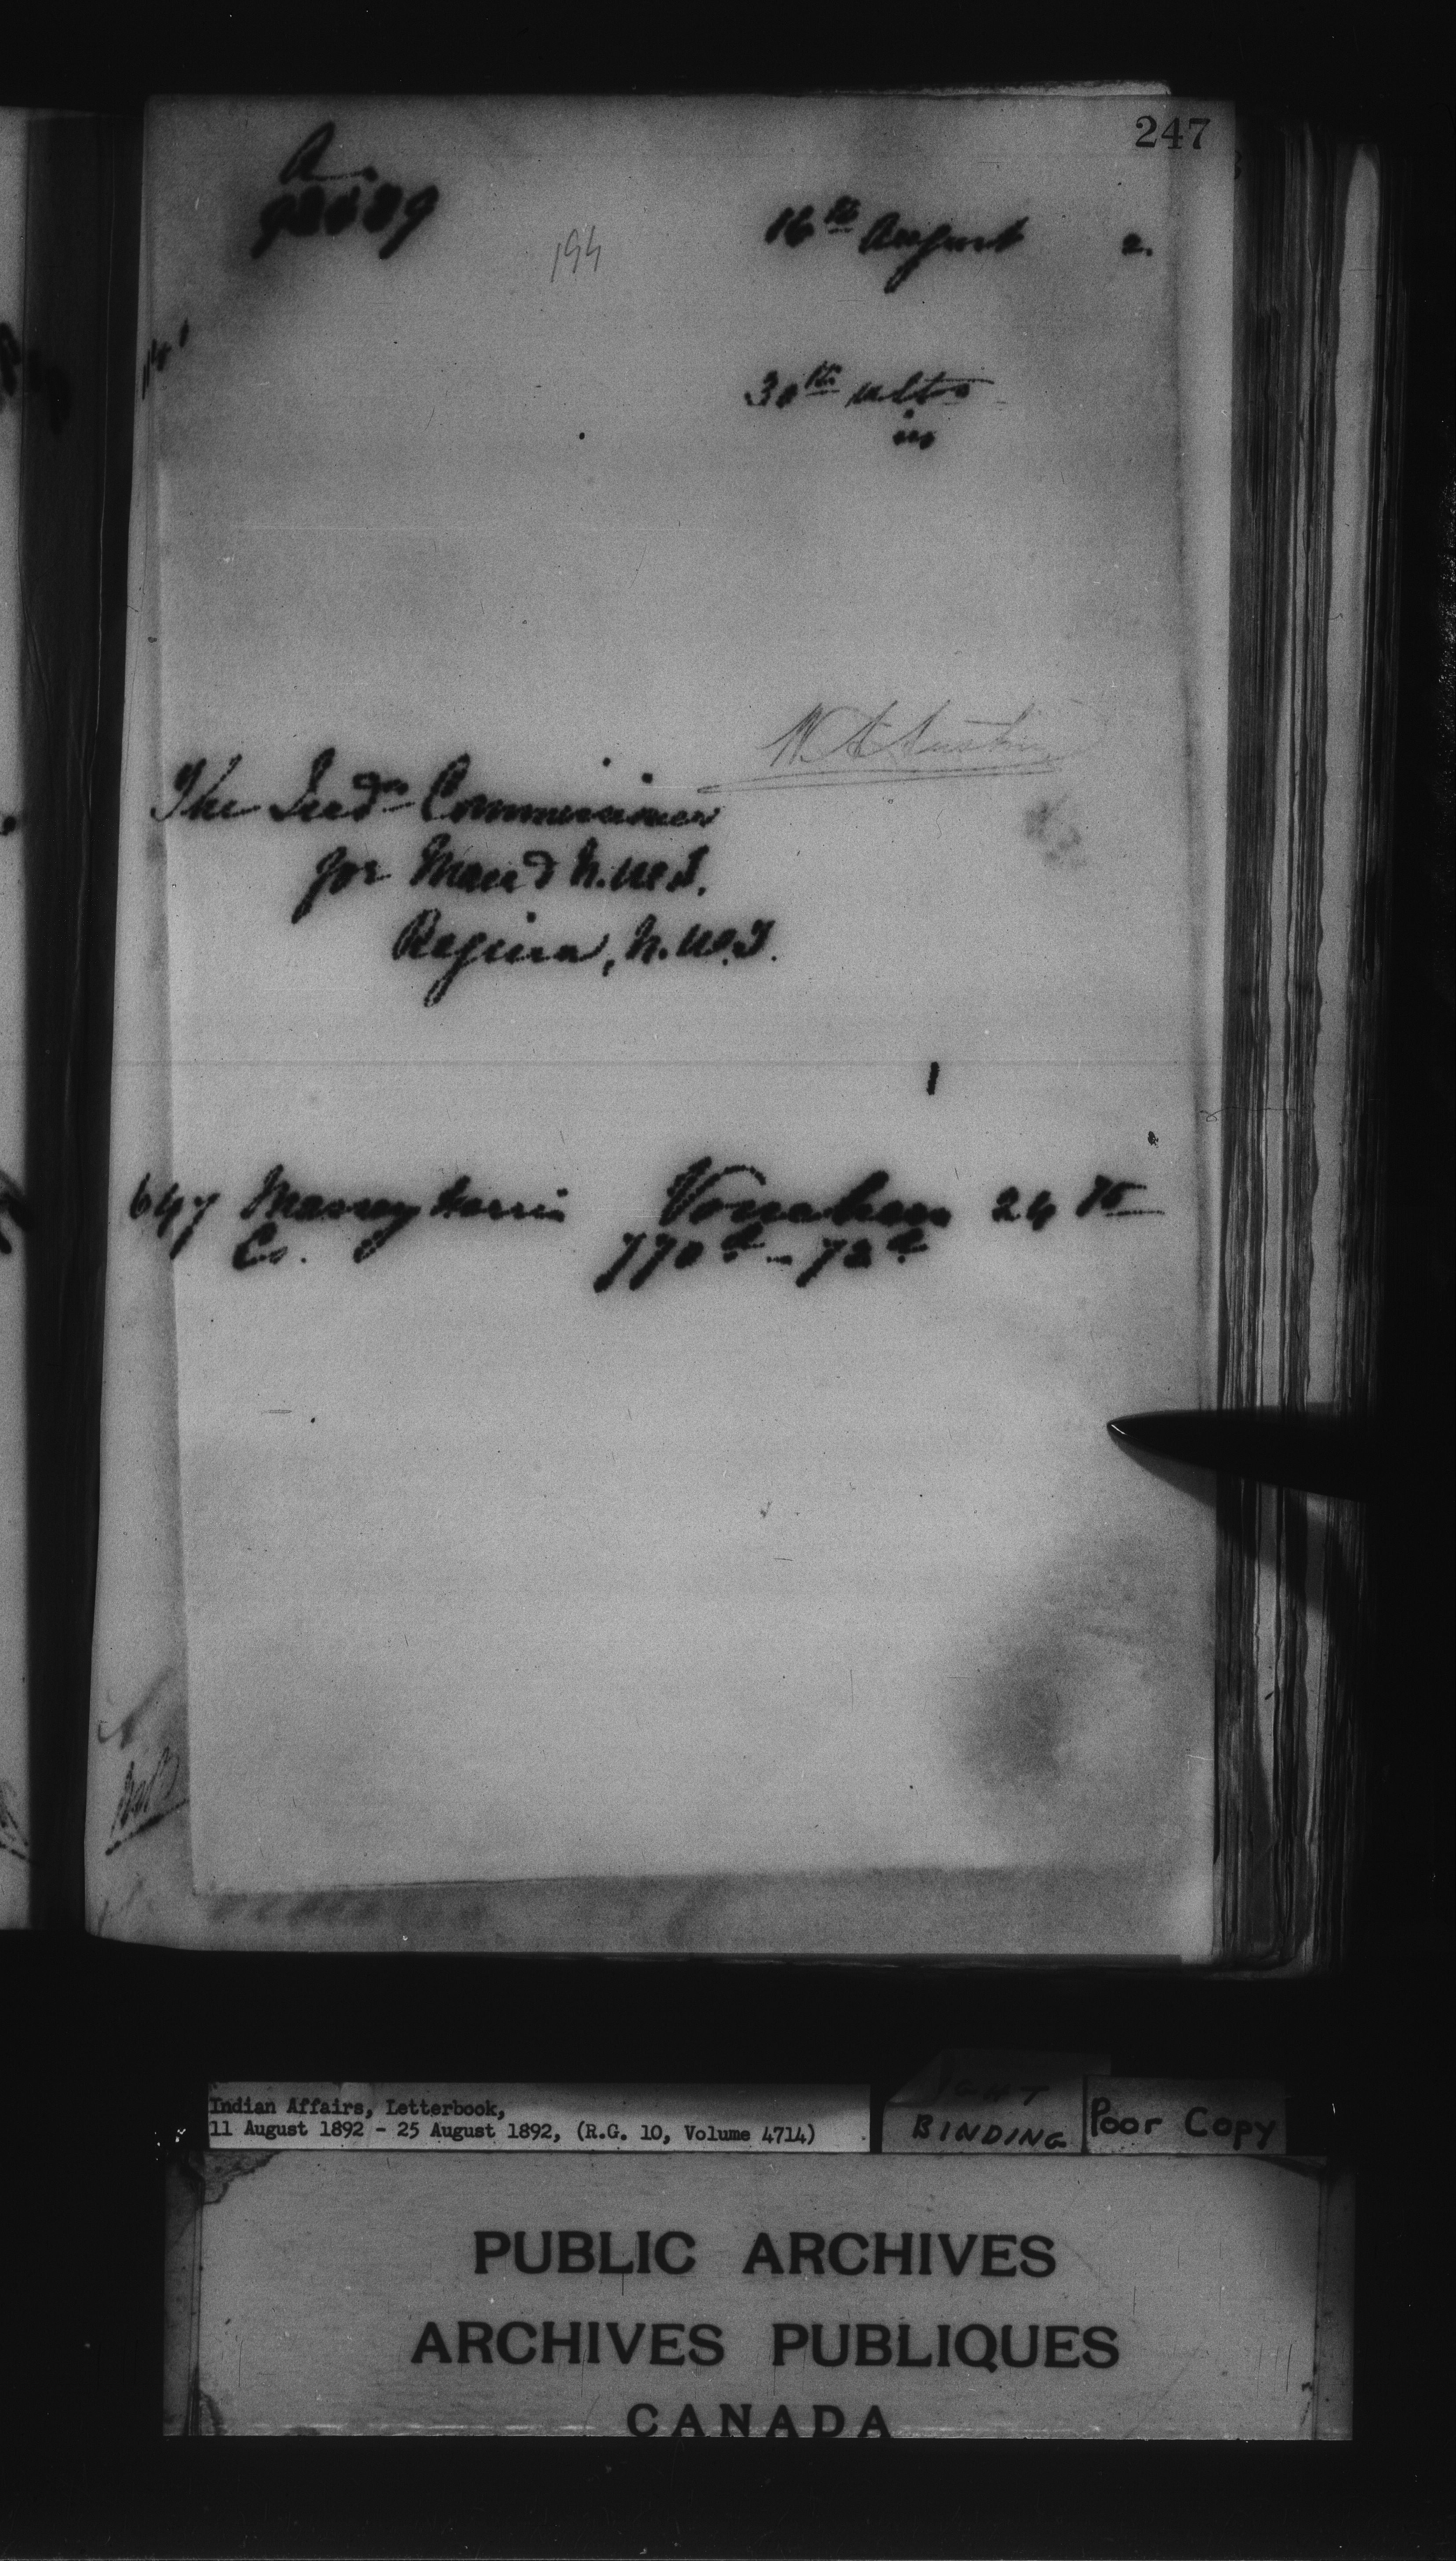 247
A.
194
16th August 2.
30th ulto
in
W. A. Austin
The Indn Commissioner
for Man & N.W.T.
Regina, N.W.T.
647 Massey Harris 24 75
Co.
Indian Affairs, Letterbook,
11 August 1892 - 25 August 1892, (R.G. 10, Volume 4714)
BINDING
Poor Copy
PUBLIC ARCHIVES
ARCHIVES PUBLIQUES
CANADA